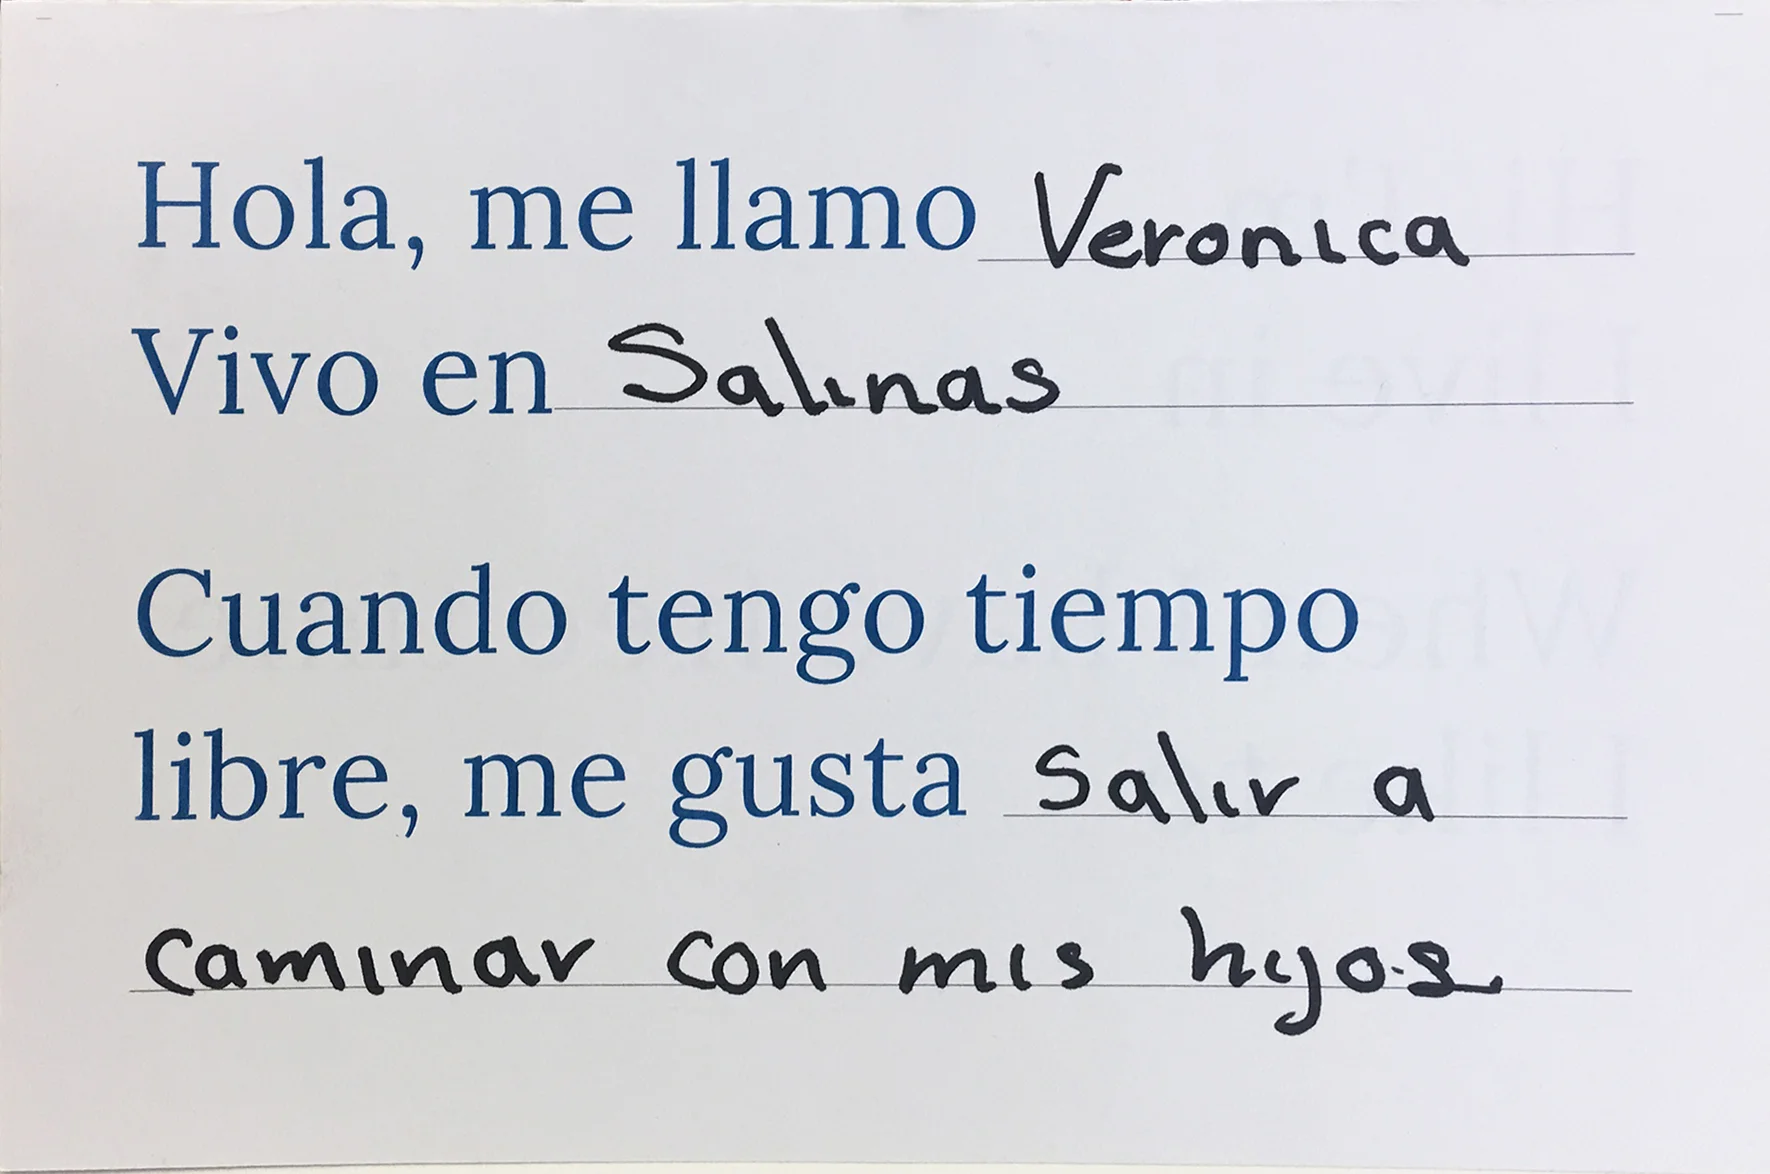 Hola, me llamo Veronica
Vivo en Salinas
Cuando tengo tiempo
libre, me gusta Salir a
Caminar con mis hijos